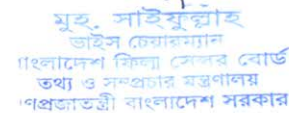 মুহ. সাইফুল্লাহ
ভাইস চেয়ারম্যান
াংলাদেশ ফিল্ম সেন্সর বোর্ড
তথ্য ও সম্প্রচার মন্ত্রণালয়
ণপ্রজাতন্ত্রী বাংলাদেশ সরকার